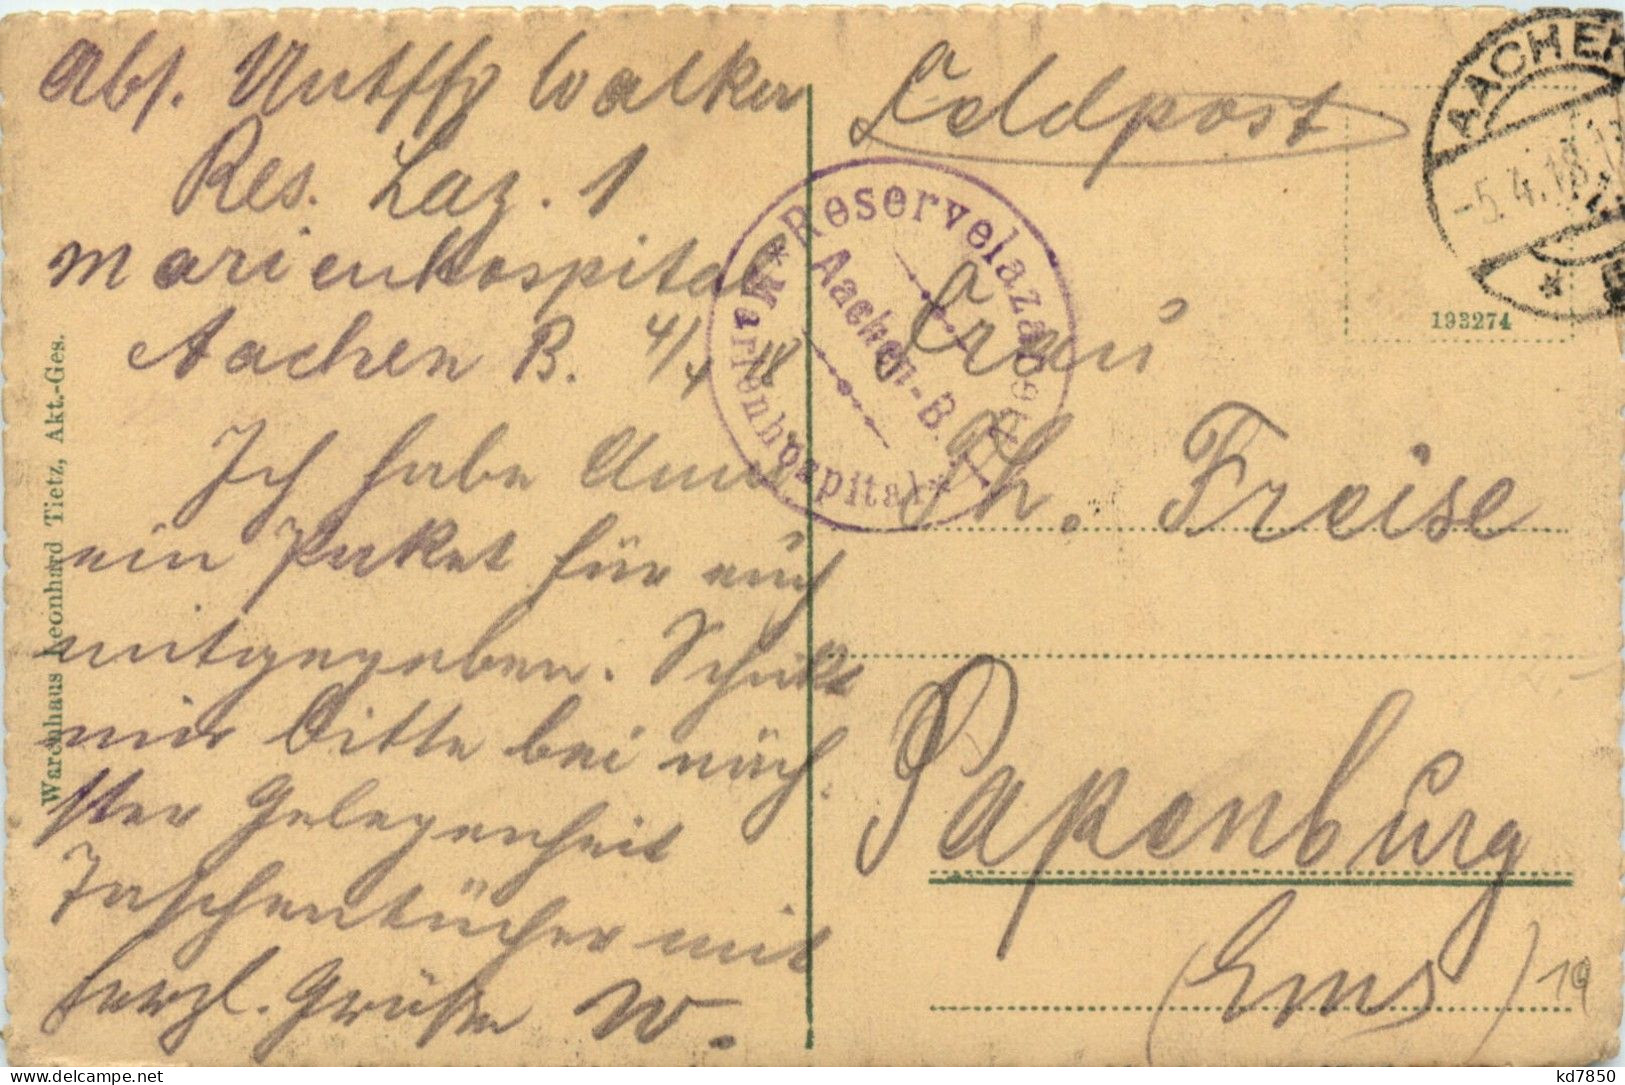 Abs. Untffz Walker
Res. Laz. 1
Marienhospital
Aachen B. 4/4 18
Ich habe Anna
ein Paket für euch
mitgegeben. Schickt
mir bitte bei näch-
ster Gelegenheit
Taschentücher mit
herzl. Grüßen W.
Warenhaus Leonhard Tietz, Akt.-Ges.
Feldpost
Frau
Th. Freise
Papenburg
(Ems)
19
* Reservelazarett I *
Aachen-B.
Marienhospital
AACHEN
-5.4.18.
*
193274
kd7850